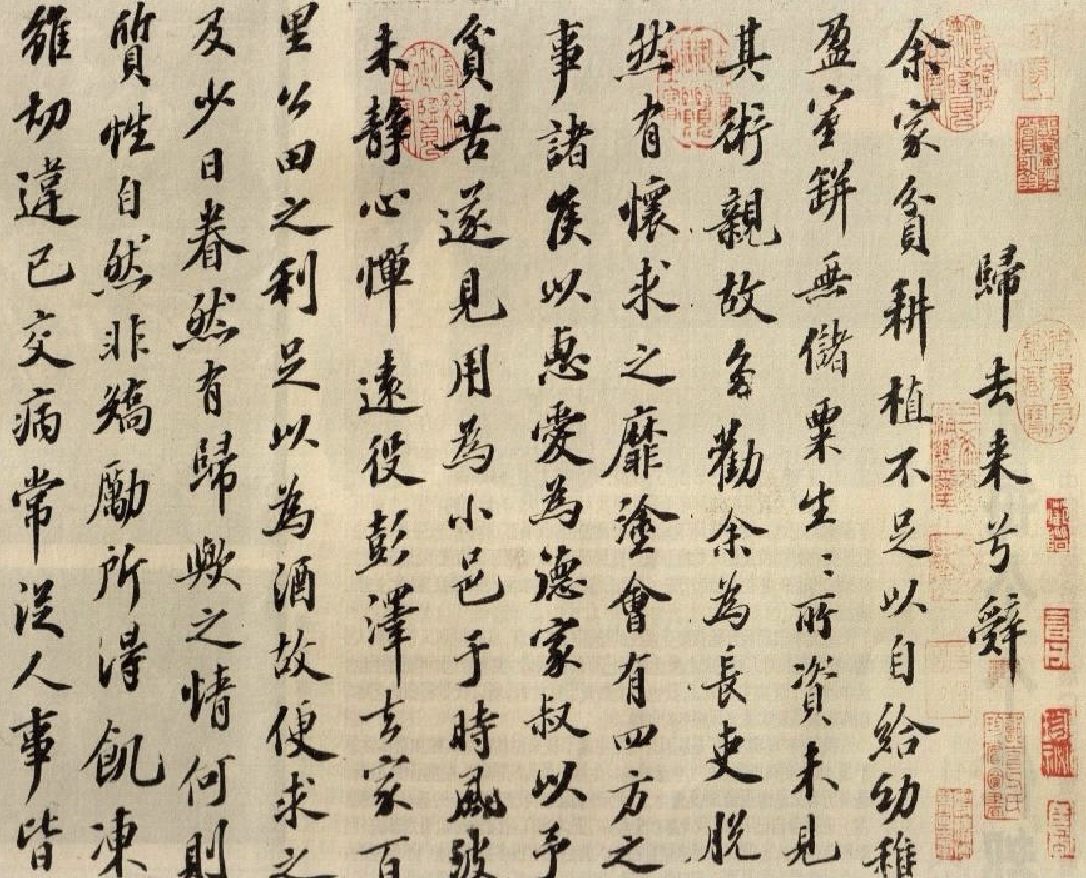 歸去来兮辭
余家貧耕植不足以自給幼稚
盈室缾無儲粟生〻所資未見
其術親故多勸余為長吏脫
然有懷求之靡塗會有四方之
事諸侯以惠愛為德家叔以予
貧苦遂見用為小邑于時風波
未静心憚遠役彭澤去家百
里公田之利足以為酒故便求之
及少日眷然有歸歟之情何則
質性自然非矯勵所得飢凍
雖切違己交病常從人事皆